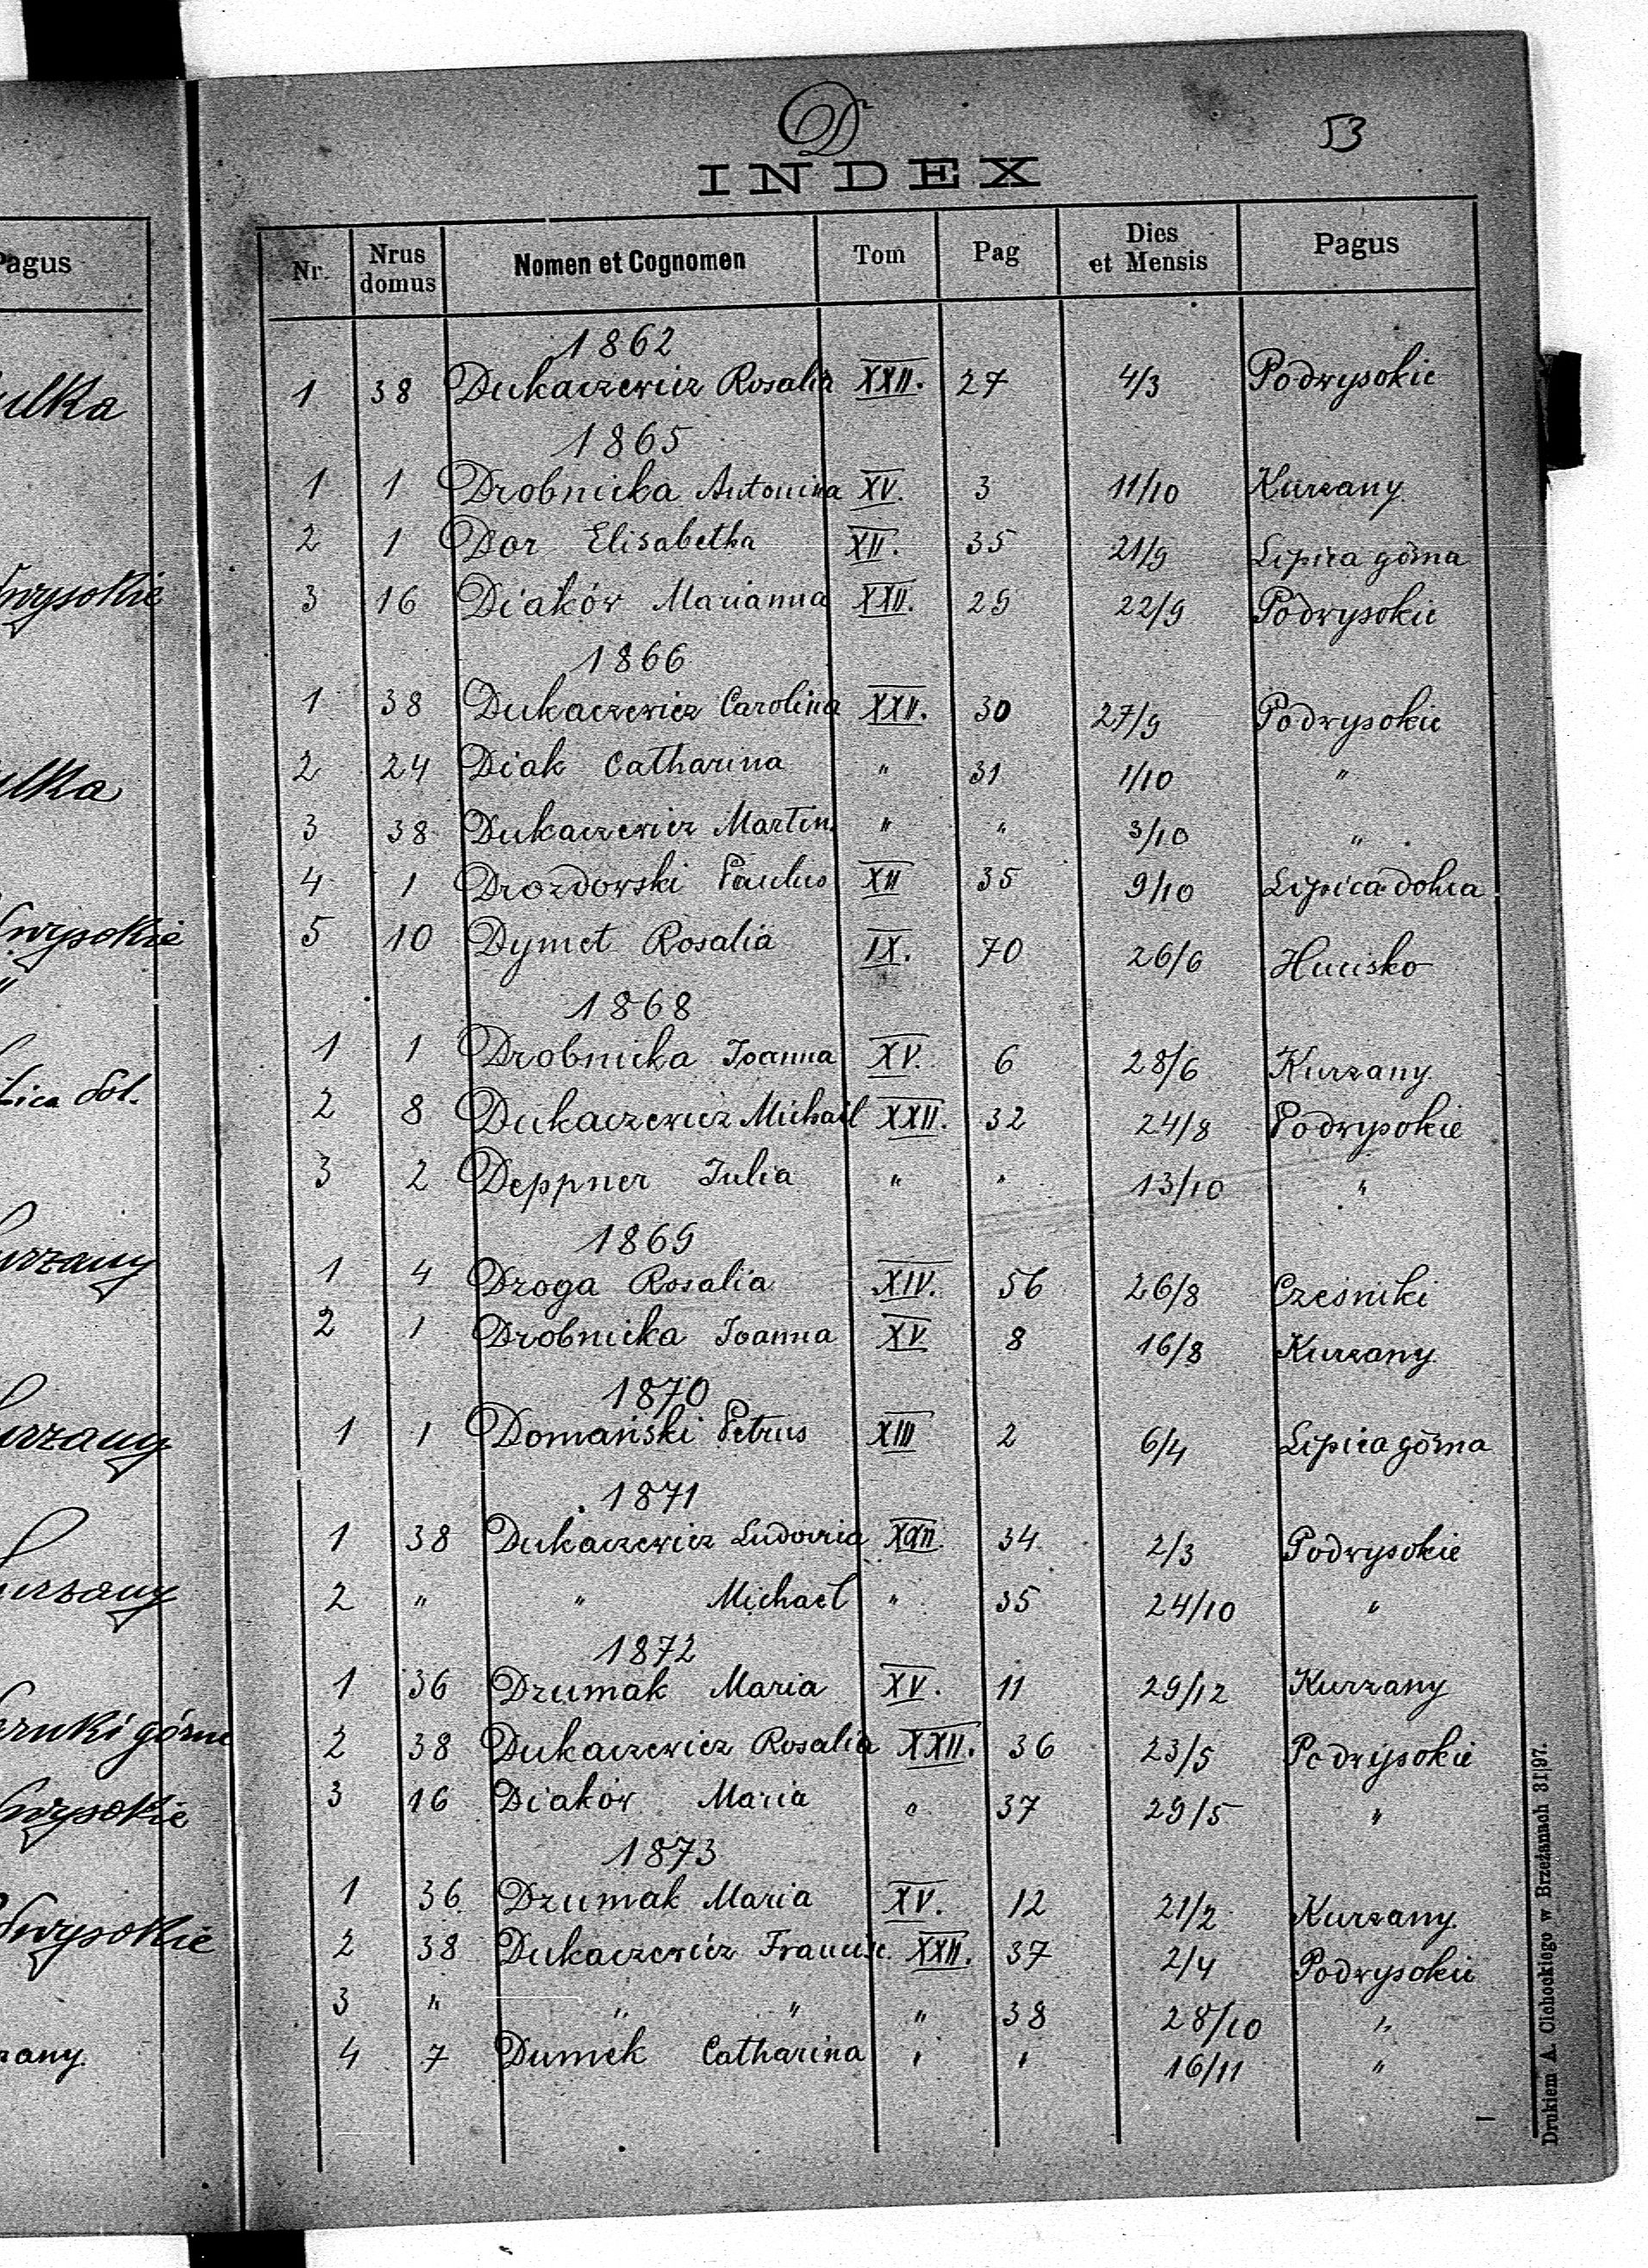 D
53
INDEX
Nr. Nrus domus Nomen et Cognomen Tom Pag Dies et Mensis Pagus
1862
1 38 Dukaczewicz Rosalia XXII. 27 4/3 Podwysokie
1865
1 1 Drobnicka Antonina XV. 3 11/10 Kurzany
2 1 Dor Elisabetha XII. 35 21/9 Lipica górna
3 16 Diaków Marianna XXII. 29 22/9 Podwysokie
1866
1 38 Dukaczewicz Carolina XXII. 30 27/9 Podwysokie
2 24 Diak Catharina " 31 1/10 "
3 38 Dukaczewicz Martin. " " 3/10 "
4 1 Drozdowski Paulus XII 35 9/10 Lipica dolna
5 10 Dymet Rosalia IX. 70 26/6 Hucisko
1868
1 1 Drobnicka Joanna XV. 6 28/6 Kurzany
2 8 Dukaczewicz Michael XXII. 32 24/8 Podwysokie
3 2 Deppner Julia " " 13/10 "
1869
1 4 Droga Rosalia XIV. 56 26/8 Cześniki
2 1 Drobnicka Joanna XV 8 16/8 Kurzany
1870
1 1 Domański Petrus XIII 2 6/4 Lipica górna
1871
1 38 Dukaczewicz Ludovica XXII. 34 2/3 Podwysokie
2 " " Michael " 35 24/10 "
1872
1 36 Dzumak Maria XV. 11 29/12 Kurzany
2 38 Dukaczewicz Rosalia XXII. 36 23/5 Podwysokie
3 16 Diaków Maria " 37 29/5 "
1873
1 36 Dzumak Maria XV. 12 21/2 Kurzany
2 38 Dukaczewicz Francisc. XXII. 37 2/4 Podwysokie
3 " " " " 38 28/10 "
4 7 Dumek Catharina " " 16/11 "
Drukiem A. Cichockiego w Brzeżanach 31|97.
Pagus
ulka
wysokie
ulka
wysokie
"
Lica dol.
urzany
urzany
urzany
górne
wysokie
dwysokie
rzany